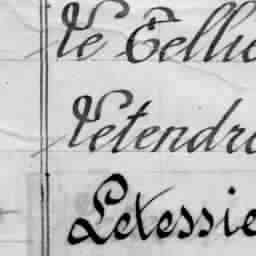 Le Tellie
Letendre
Letessie